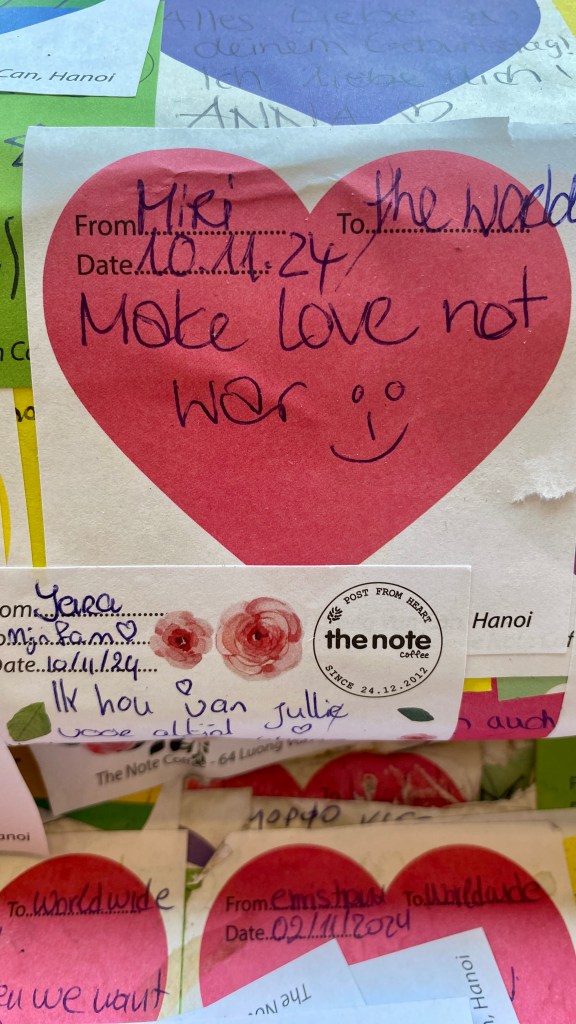 Alles Liebe zu
deinem Geburtstag!
Ich liebe dich!
ANNA
Can, Hanoi
From Miri To the world
Date 10.11.24
Make love not
war
Yara
Mijn fam
Date 10/11/24
Ik hou van jullie
voor altijd
POST FROM HEART
the note
coffee
SINCE 24.12.2012
Hanoi
auch
The Note Co - 64 Luong Van
anoi
To Worldwide
we want
From To Worldwide
Date 02/11/2024
The No
, Hanoi